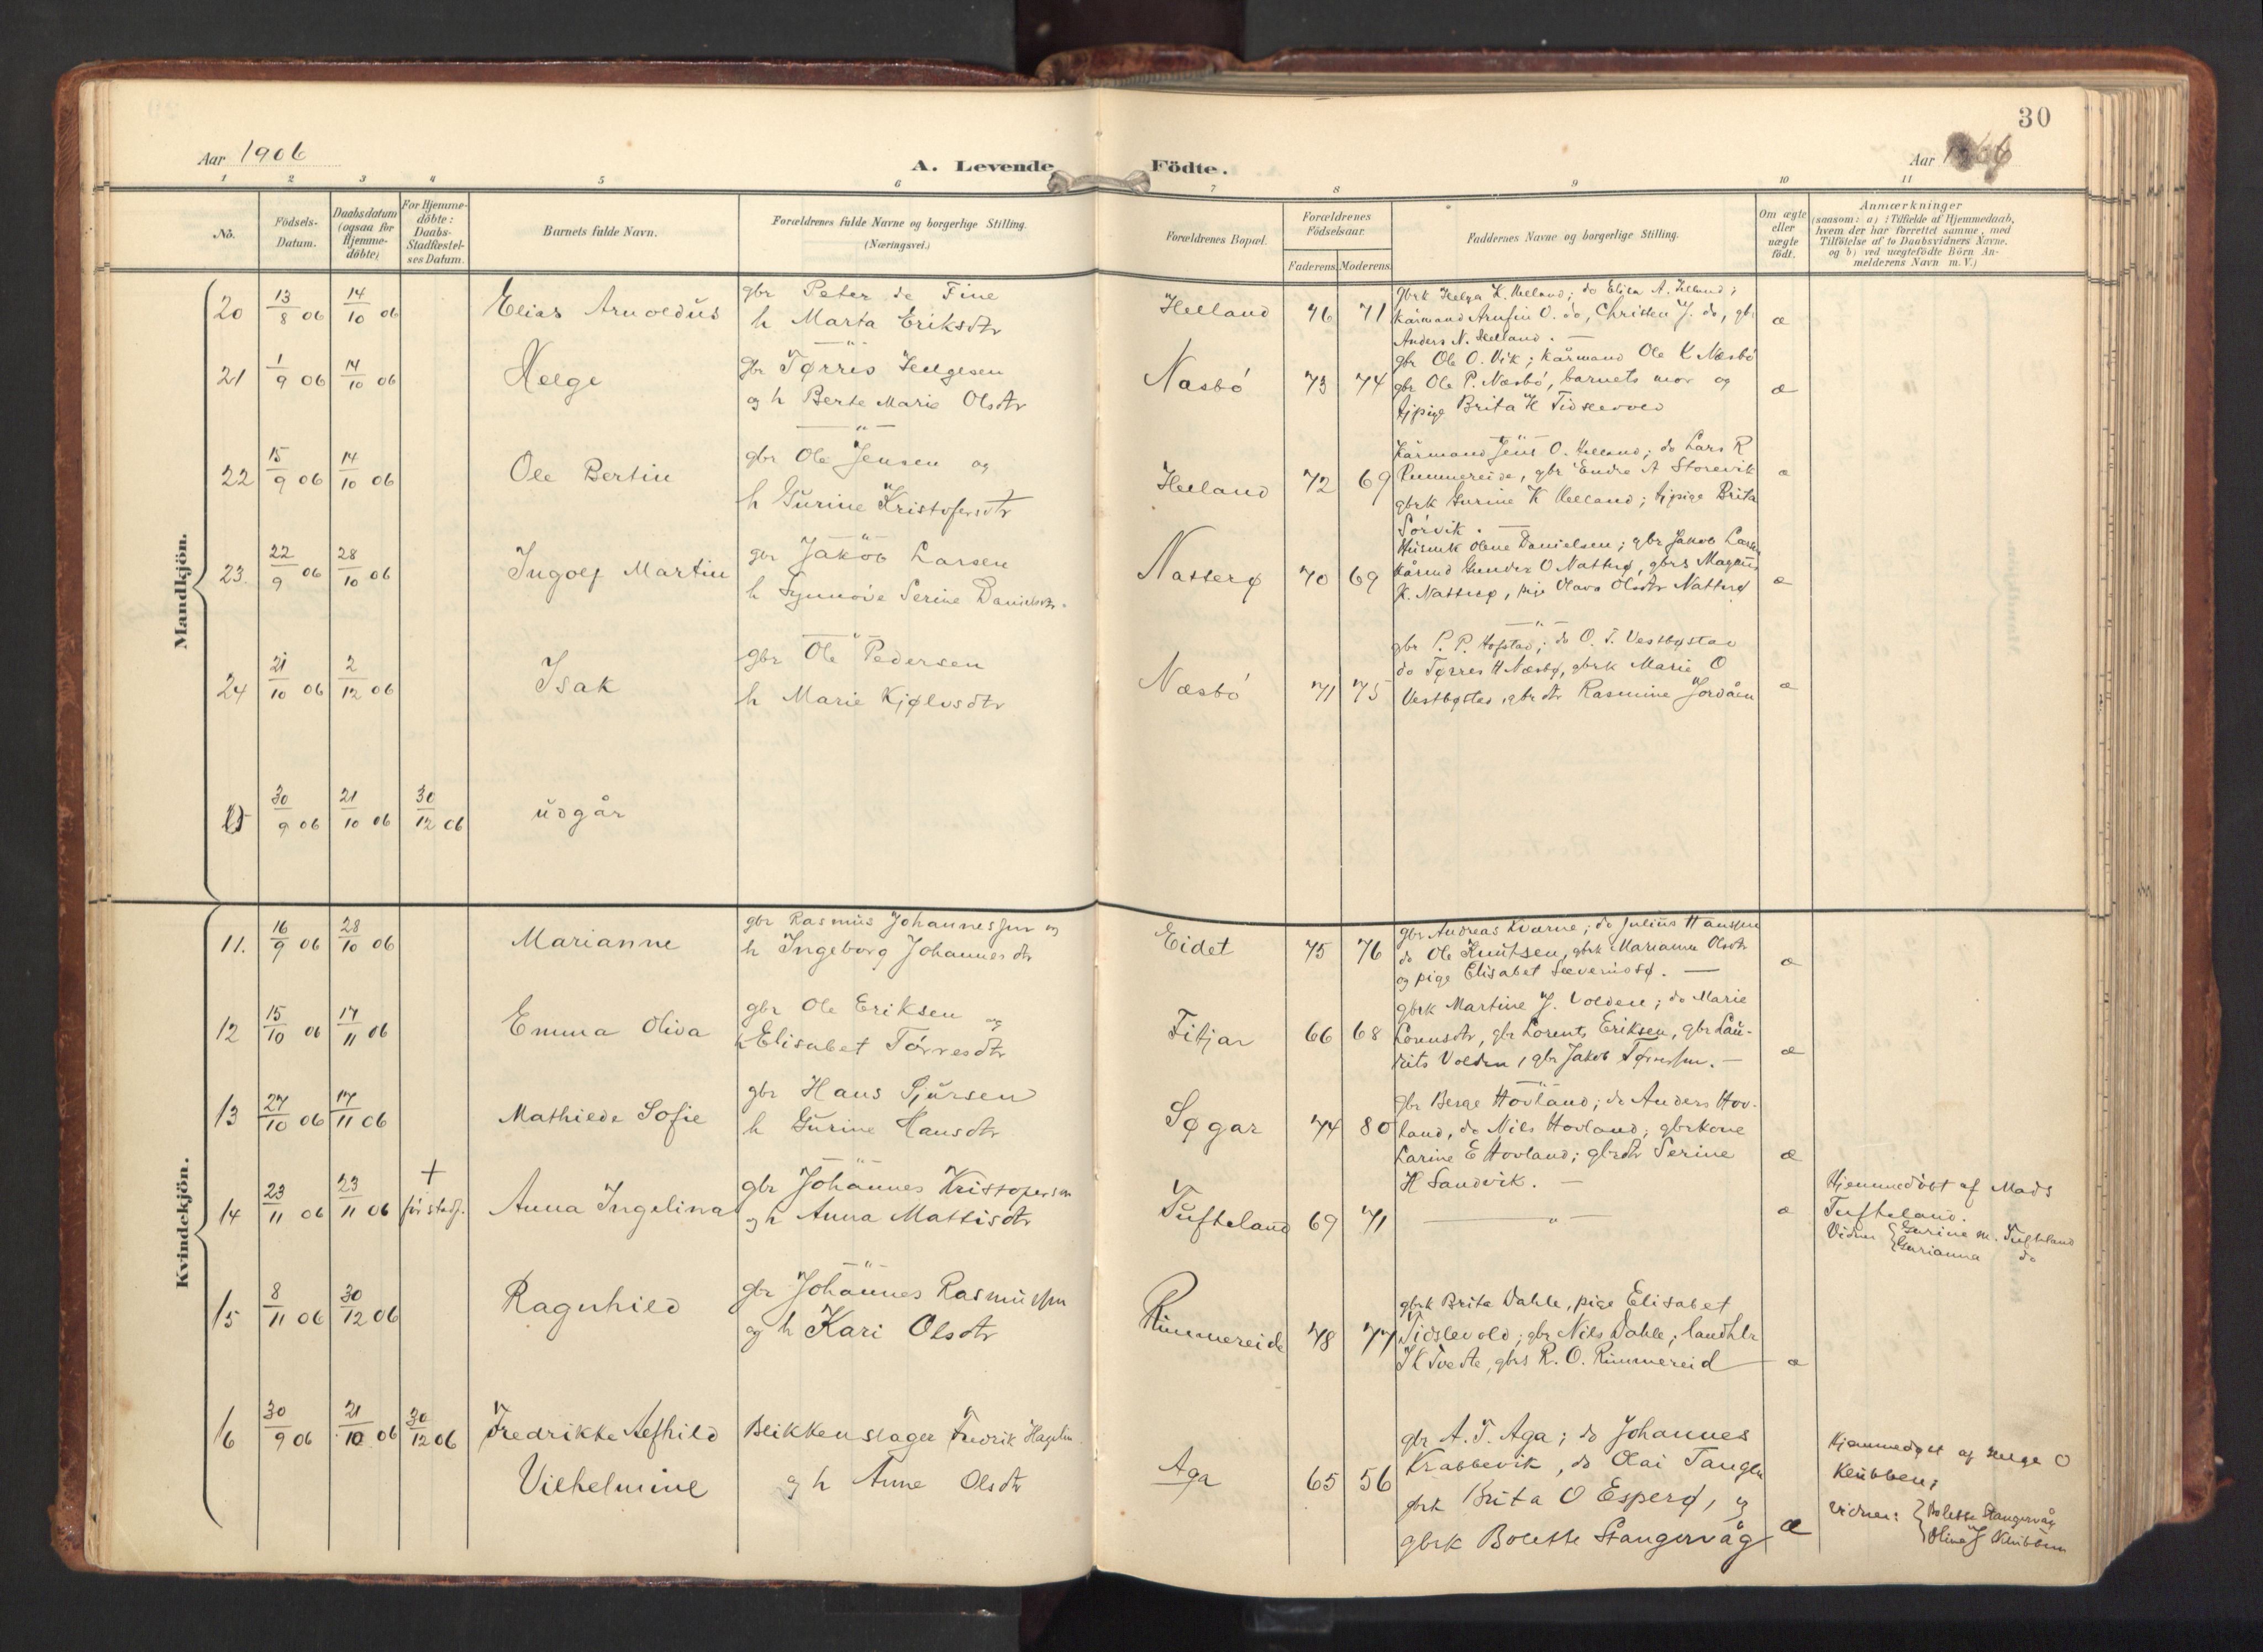 30
Aar 1906
A. Levende Födte.
Aar
1 2 3 4 5 6 7 8 9 10 11
Nö.
Födsels-
Datum.
Daabsdatum
(ogsaa for
Hjemme-
döbte)
For Hjemme-
döbte:
Daabs-
Stadfæstel-
ses Datum.
Barnets fulde Navn.
Forældrenes fulde Navne og borgerlige Stilling.
(Næringsvei.)
Forældrenes Bopæl.
Forældrenes
Födselsaar.
Faderens. Moderens.
Faddernes Navne og borgerlige Stilling.
Om ægte
eller
uægte
födt.
Anmærkninger
(saasom: a) i Tilfælde af Hjemmedaab,
hvem der har forrettet samme, med
Tilföielse af to Daabsvidners Navne.
og b) ved uægtefödte Börn An-
melderens Navn m. V.)
Mandkjön.
20 13/8 06 14/10 06 Elias Arnoldus
gbr Peter de Fine
h Marta Eriksdtr
Helland 76 71
gbrk Helga K. Helland; do Elisa A. Helland;
kårmand O. do, Christen J. do, gbr
Anders N. Helland. —
æ
21 1/9 06 14/10 06 Helge
gbr Tørris Helgesen
og h Berte Marie Olsdtr
Næsbö 73 74
gbr Ole O. Vik; kårmand Ole K Næsbö
gbr Ole P. Næsbö, barnets mor og
tjpige Brita K Tidslevold
æ
22 15/9 06 14/10 06 Ole Bertin
gbr Ole Jensen og
h Gurine Kristofersdtr
Helland 72 69
Kårmand Jens O. Helland; do Lars R
Rimmereide, gbr Endre A Storevik
gbrk Gurine K Helland; tjpige Brita
Sörvik. —
æ
23. 22/9 06 28/10 06 Ingolf Martin
gbr Jakob Larsen
h Synnöve Serine Danielsdtr.
Natterø 70 69
Husmk Olene Danielsen; gbr Jakob Larsen
kårmd Gunder O Natterø, gbrs Magnus
K. Natterø, pige Olava Olsdtr Natterø
æ
24 21/10 06 2/12 06 Isak
gbr Ole Pedersen
h Marie Kjølvsdtr
Næsbö 71 75
gbr P. P. Hofstad; do O. T. Vestbøstad
do Tørres H Næsbø, gbrk Marie O
Vestbøstad, gbrdtr Rasmine Jordåen
æ
30/9 06 21/10 06 30/12 06 udgår
Kvindekjön.
11. 16/9 06 28/10 06 Marianne
gbr Rasmus Johannessen og
h Ingeborg Johannesdtr
Eidet 75 76
gbr Andreas Kværne; do Julius Hanssen
do Ole Knutsen, gbrk Marianne Olsdtr
og pige Elisabet. —
æ
12 15/10 06 17/11 06 Emma Oliva
gbr Ole Eriksen og
h Elisabet Törresdtr
Fitjar 66 68
gbrk Martine J. Volden; do Marie
Lorensdtr, gbr Lorents Eriksen, gbr Lau-
rits Volden, gbr Jakob Tørressen. —
æ
13 27/10 06 17/11 06 Mathilde Sofie
gbr Hans Sjursen
h Gurine Hansdtr
Søgar 74 80
gbr Berge Hovland; do Anders Hov-
land, do Nils Hovland; gbrkone
Larine E Hovland; gbrdtr Serine
H Sandvik. —
æ
14 23/11 06 23/11 06 + för stadf. Anna Ingelina
gbr Johannes Kristofersen
og h Anna Mattisdtr
Tufteland 69 71
— " —
æ
Hjemmedöbt af Mads
Tufteland.
Vidner { Gurine M. Tufteland
Gurianna do
15 8/11 06 30/12 06 Ragnhild
gbr Johannes Rasmussen
og h Kari Olsdtr
Rimmereide 78 77
gbrk Brita Dahle, pige Elisabet
Tidslevold; gbr Nils Dahle; landhlr
K Tvedte, gbrs R. O. Rimmereid
æ
16 30/9 06 21/10 06 30/12 06 Fredrikke Alfhild
Vilhelmine
Blikkenslager Fredrik Hagelin
og h Anne Olsdtr
Aga 65 56
gbr A. T. Aga; do Johannes
Krabbevik, do Olai Tangen
gbrk Brita O Esperø, og
gbrk Bolette Stangervåg
æ
Hjemmedøbt af Helge O
Klubben;
Vidner: { Bolette Stangervåg
Oline J Klubben